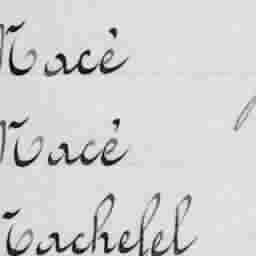 Macé
Macé
Machefel